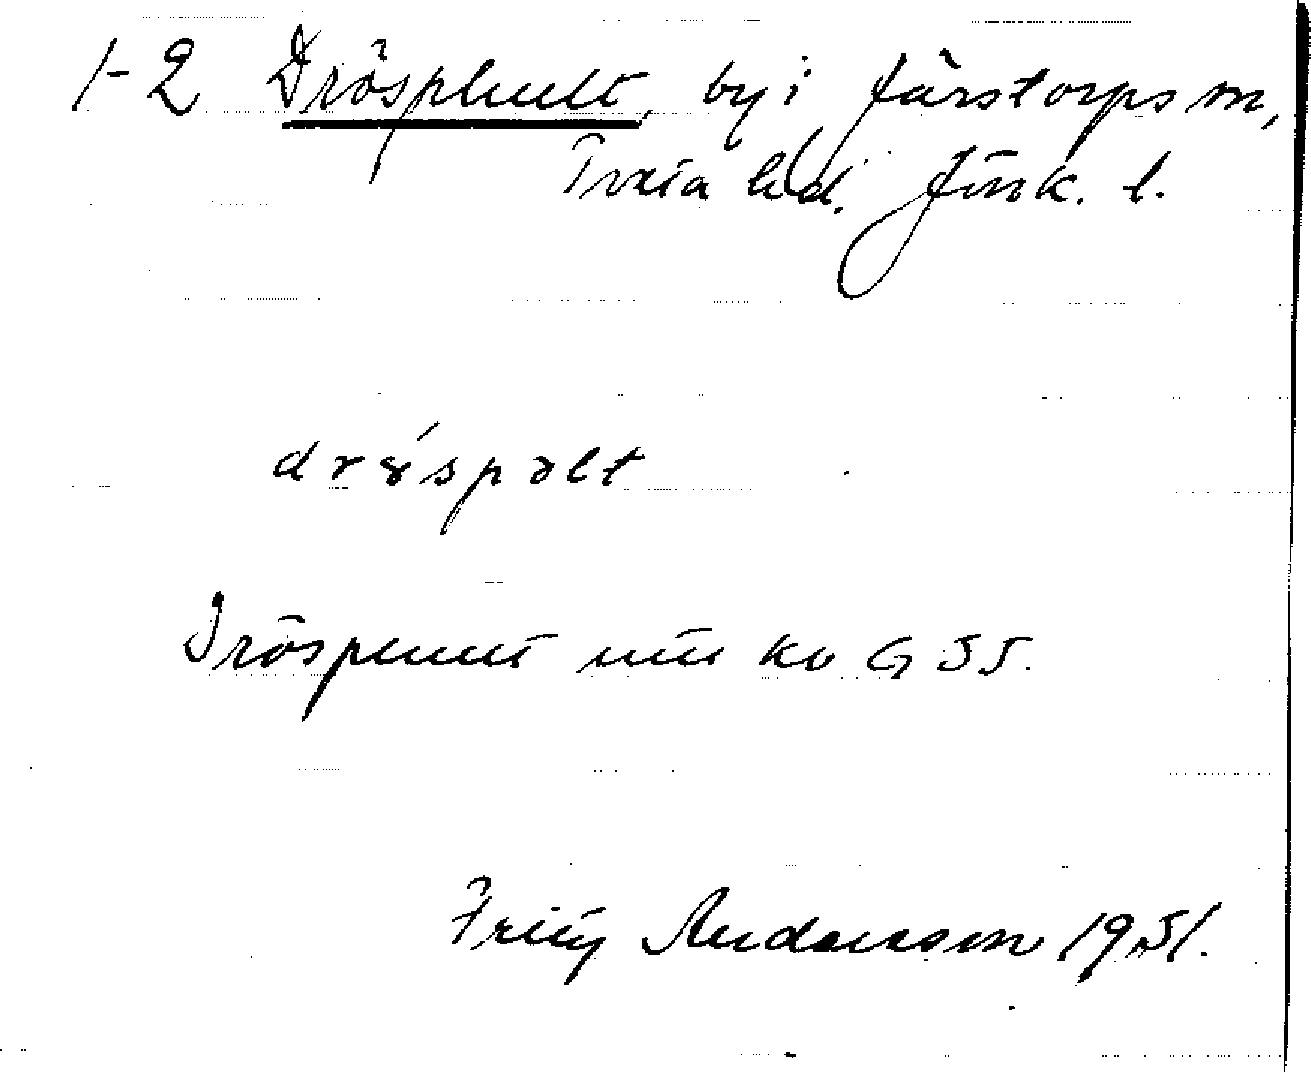 1-2 Dröshult, by i Järstorps sn,
Tveta hd. Jönk. l.
drɤ́spəlt
Drösphult utu ko G 55.
Fritz Andersson 1951.